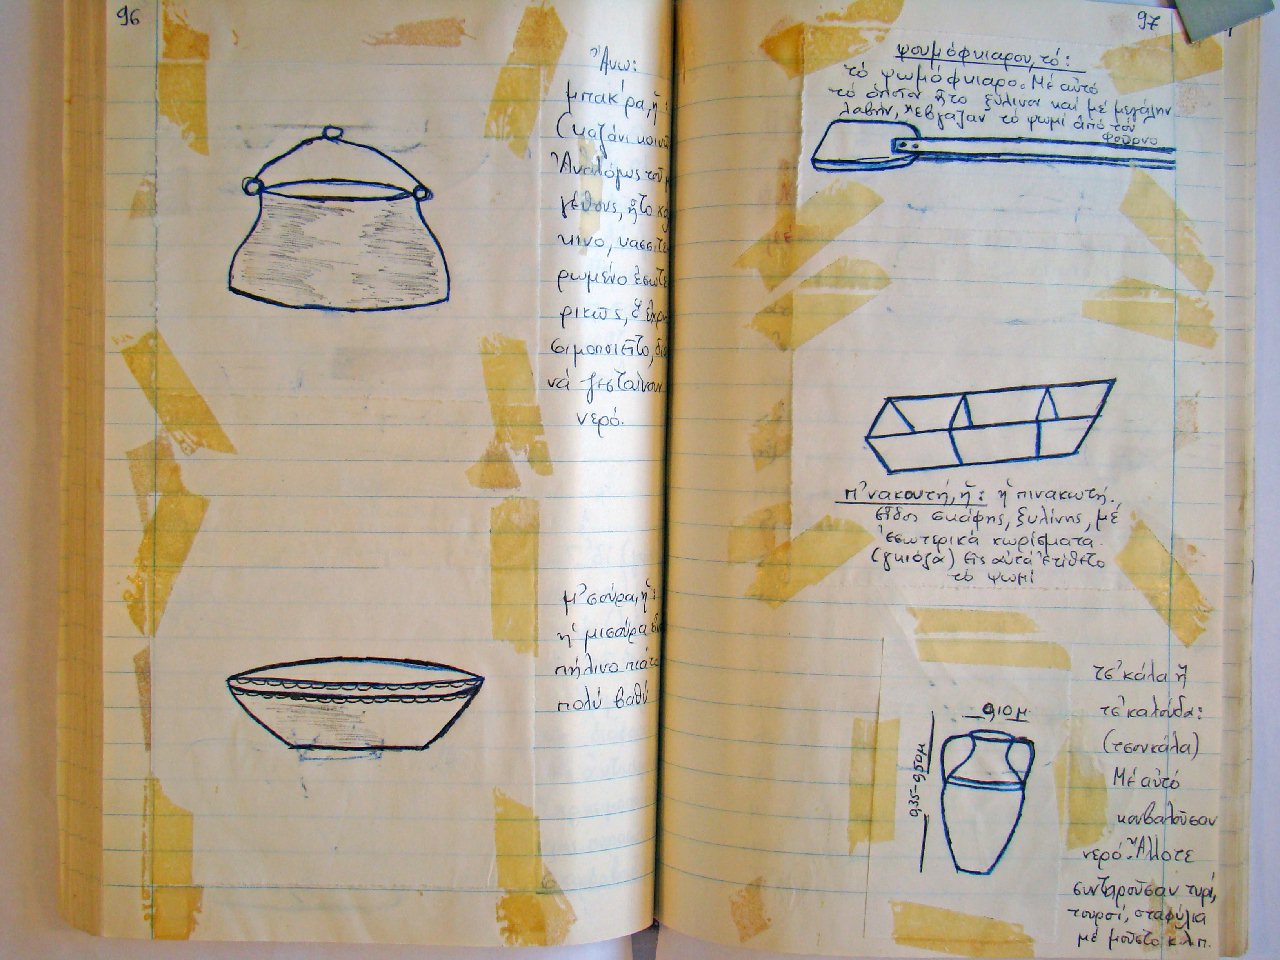 96
Ἄνω:
μπακ'ρα, ἡ:
(καζάνι
Ἀναλόγως τοῦ
γέθους, ἦτο
κινο, κασσιτε
ρωμένο ἐσωτε
ρικῶς,
σιμοποιεῖτο, διὰ
νά ζεσταίνουν
νερό.
μ'σούρα, ἡ:
ἡ μισούρα
πήλινο πιάτο
πολύ βαθύ
97
ψουμόφκιαρου, τό:
τό ψωμόφκιαρο. Μέ αὐτό
τό ὁποῖον ἦτο ξύλινον καί μέ μεγάλην
λαβήν, ἔβγαζαν τό ψωμί ἀπό τόν
φοῦρνο
π'νακουτή, ἡ: ἡ πινακωτή.
εἶδος σκάφης, ξυλίνης, μέ
ἐσωτερικά χωρίσματα.
(γκιόζα) εἰς αὐτά ἐτίθετο
τό ψωμί
τσ'κάλα ἤ
τσ'καλούδα:
(τσουκάλα)
Μέ αὐτό
κουβαλοῦσαν
νερό. Ἄλλοτε
συντηροῦσαν τυρί,
τουρσί, σταφύλια
μέ μοῦστο κ.λ.π.
0,10 μ
0,35-0,50 μ